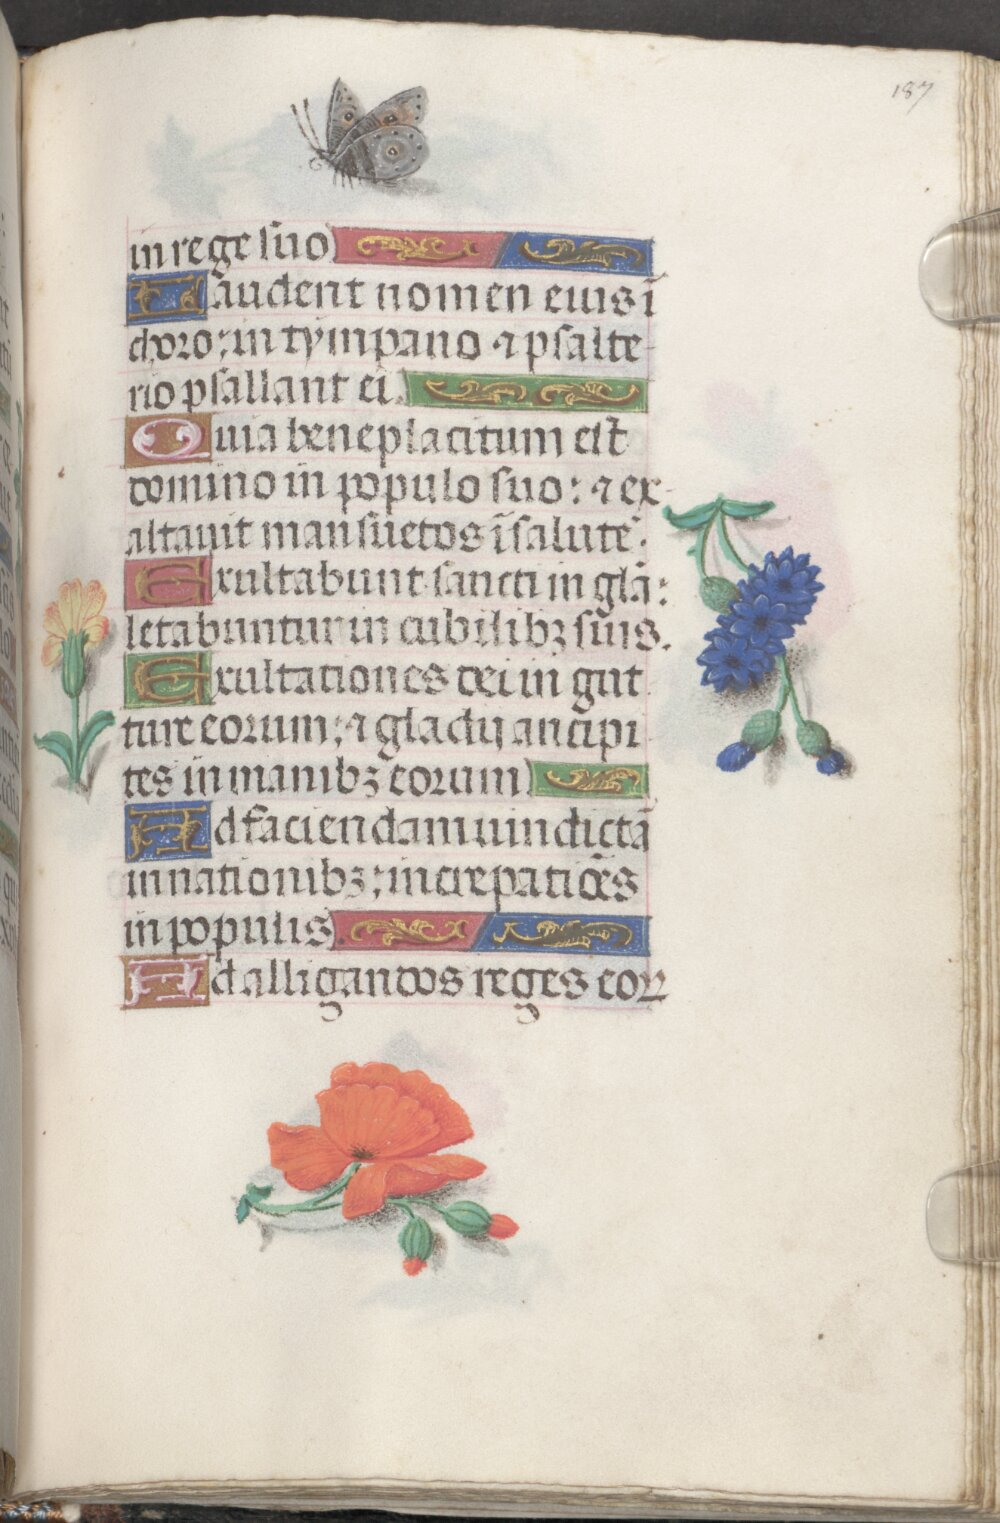 187
in rege suo
Laudent nomen eius ī
choro: in tympano ⁊ psalte
rio psallant ei.
Quia beneplacitum est
domino in populo suo: ⁊ ex
altauit mansuetos ī salutē.
Exultabunt sancti in glā:
letabuntur in cubilibꝫ suis.
Exultationes dei in gut
ture eorum: ⁊ gladij ancipi
tes in manibꝫ eorum
Ad faciendam uindictā
in nationibꝫ: increpatiōes
in populis.
Ad alligandos reges eoꝝ